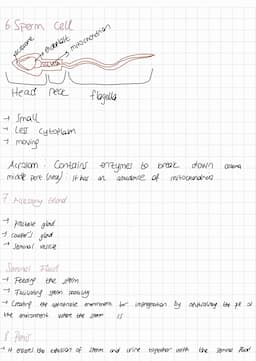 6. Sperm Cell
mitochondrion
Head neck flagella
→ Small
→ Less cytoplasm
→ moving
Acrosom : Contains enzymes to break down
middle part (neck) It has an abundance of mitochondria
7. Accessory Gland
→ prostate gland
→ cowper's gland
→ Seminal vesicle
Seminal Fluid
→ Feeding the sperm
→ Facilitating sperm
→ Creating the appropriate environment for by the pH of
the environment where the sperm is
8. Penis
→ It the of sperm and urine together with the seminal fluid